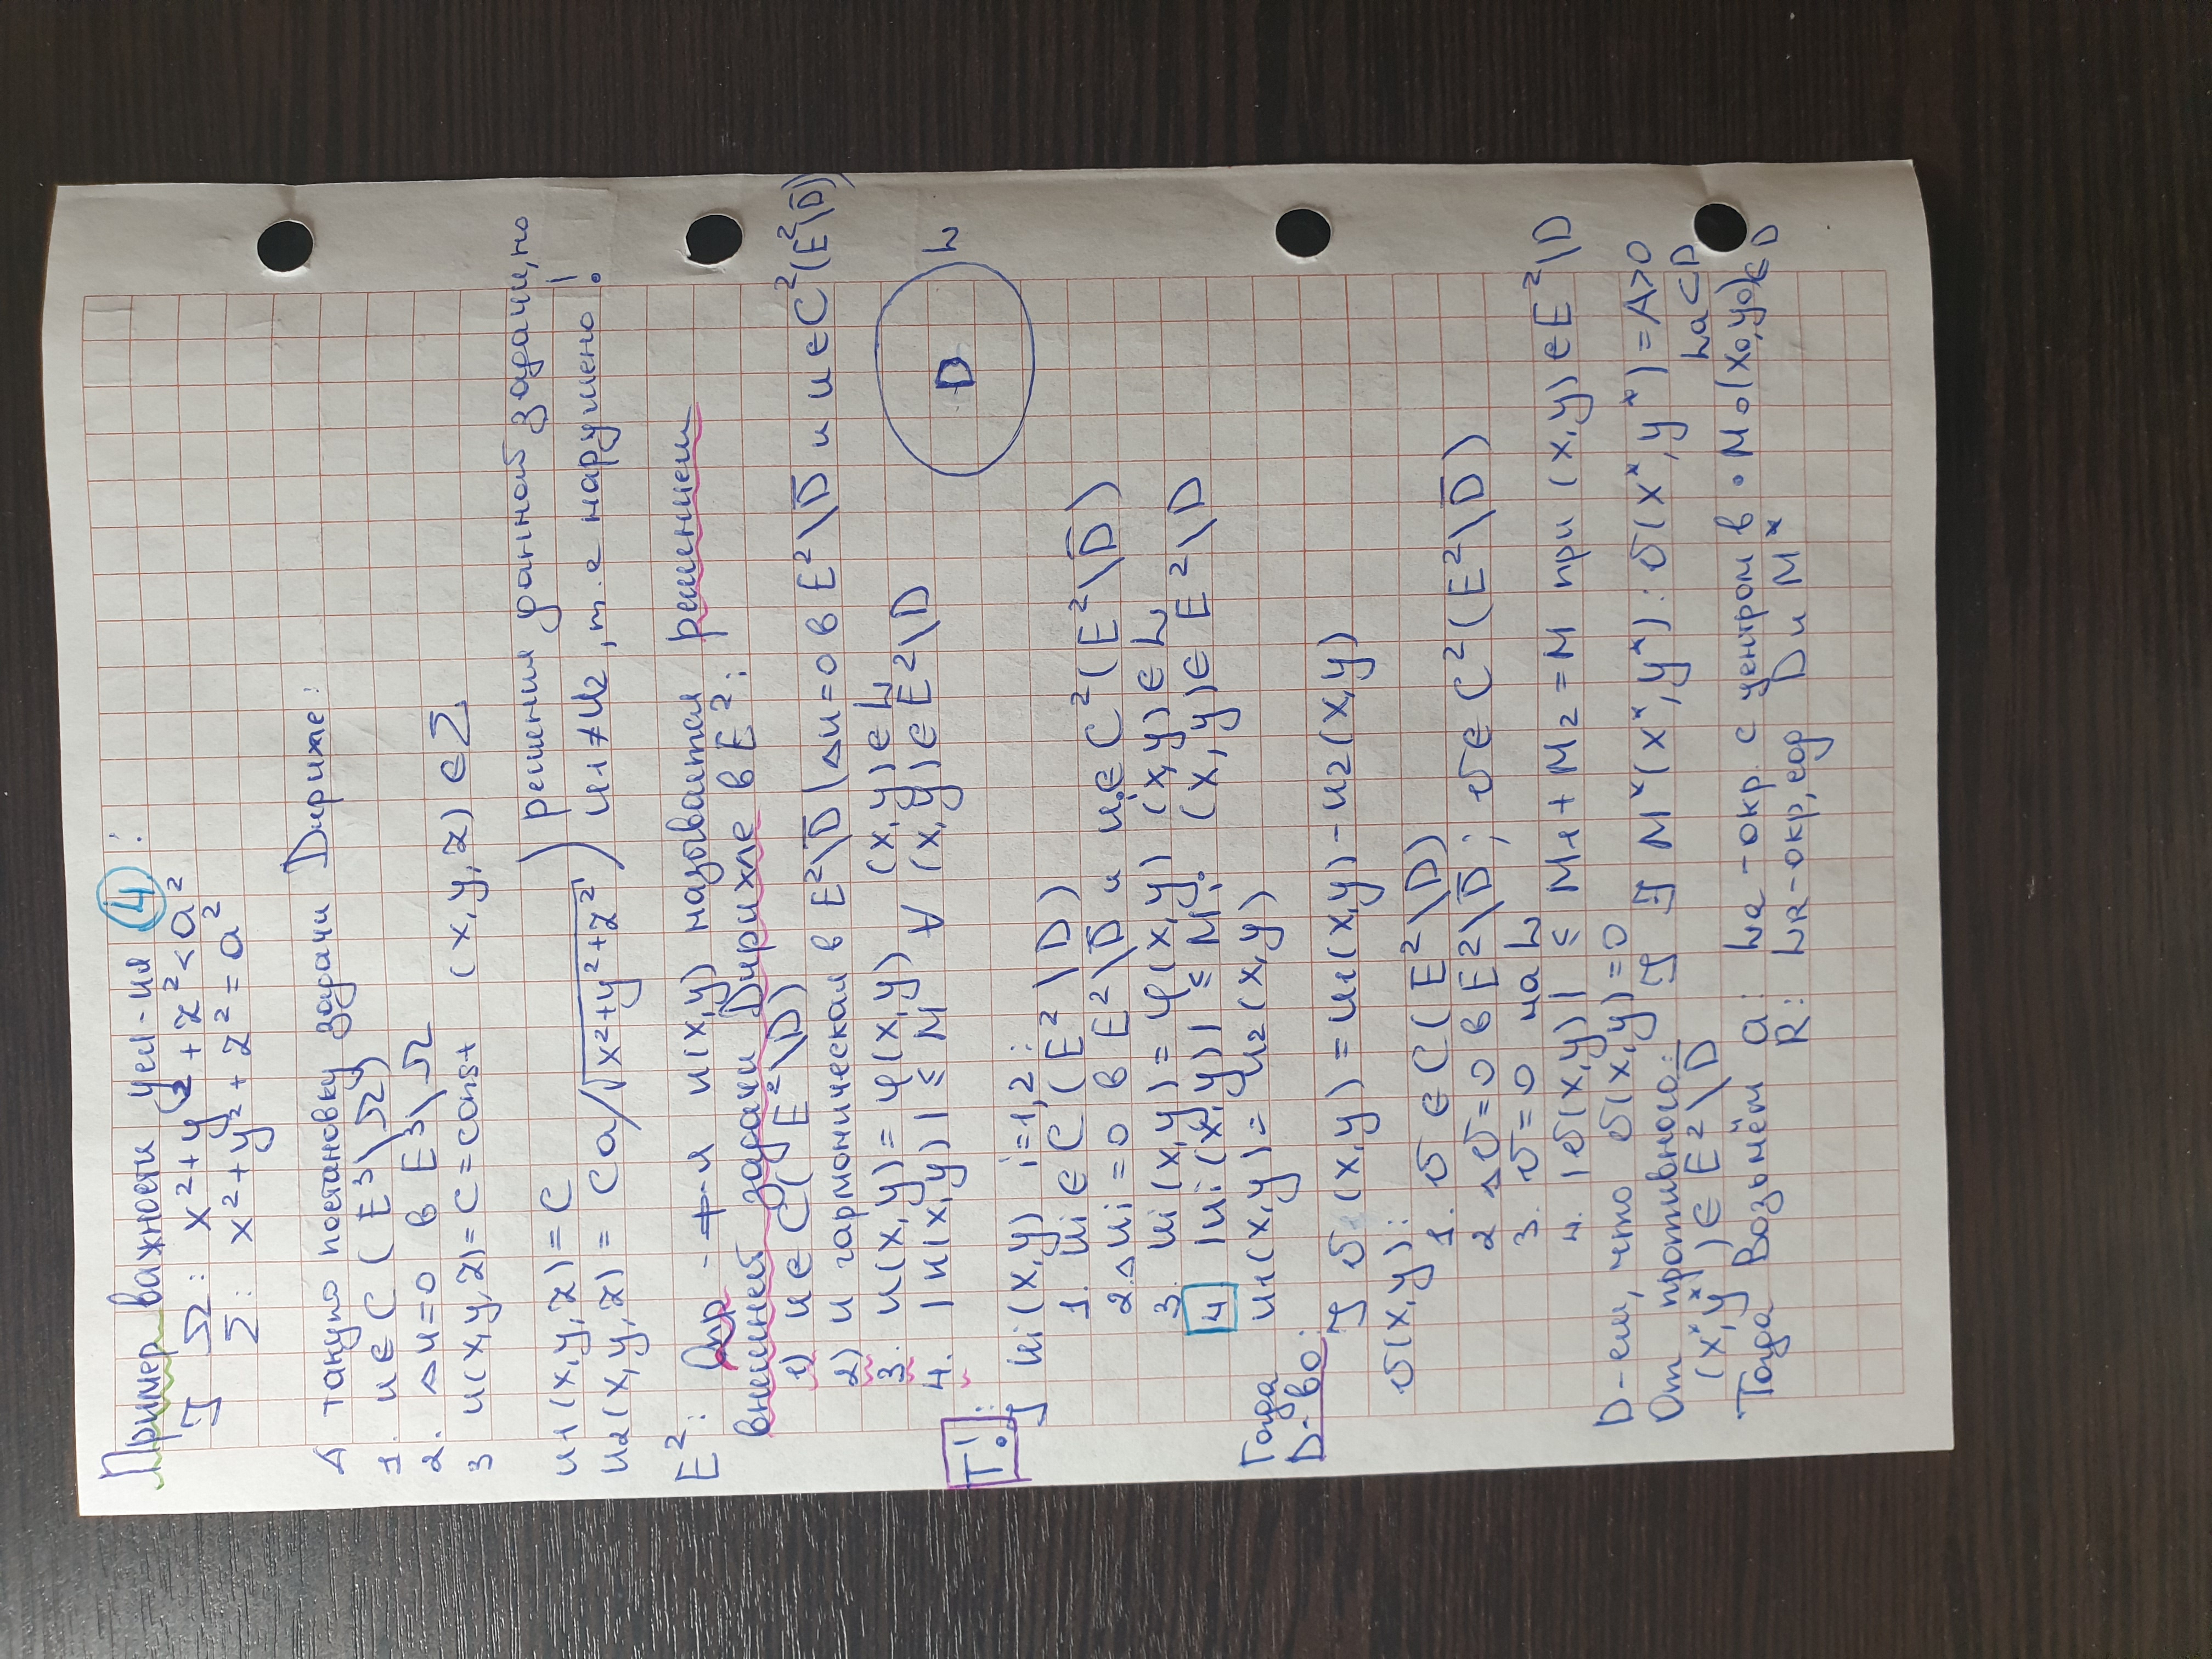 Пример важности усл-ия (4):
∃ Ω: x²+y²+z²<a²
Σ: x²+y²+z²=a²
Δ такую постановку задачи Дирихле:
1. u∈C(E³\Ω)
2. Δu=0 в E³\Ω̅
3 u(x,y,z)=C=const (x,y,z)∈Σ
u₁(x,y,z)=C
u₂(x,y,z)=Ca/√(x²+y²+z²) ) решения данной задачи, но
u₁≠u₂, т.е нарушено!
E²: Опр - ф-я u(x,y) называется решением
внешней задачи Дирихле в E²:
1) u∈C(E²\D)
2) u гармоническая в E²\D̅ (Δu=0 в E²\D̅ и u∈C²(E²\D̅))
3. u(x,y)=φ(x,y) (x,y)∈L
4. |u(x,y)|≤M ∀(x,y)∈E²\D
D L
T!: ∃ uᵢ(x,y) i=1,2:
1. uᵢ∈C(E²\D)
2. Δuᵢ=0 в E²\D̅ и uᵢ∈C²(E²\D̅)
3. uᵢ(x,y)=φ(x,y) (x,y)∈L
4 |uᵢ(x,y)|≤Mᵢ (x,y)∈E²\D
Тогда u₁(x,y)=u₂(x,y)
D-во:
∃ υ(x,y)=u₁(x,y)-u₂(x,y)
υ(x,y):
1. υ∈C(E²\D)
2 Δυ=0 в E²\D̅; υ∈C²(E²\D̅)
3. υ=0 на L
4. |υ(x,y)|≤M₁+M₂=M при (x,y)∈E²\D
D-ем, что υ(x,y)=0
От противного: ∃ ∃ M*(x*,y*): υ(x*,y*)=A>0
(x*,y*)∈E²\D̅
Тогда возьмём a: La-окр. с центром в • M₀(x₀,y₀)∈D La⊂D
R: LR-окр, сод D и M*